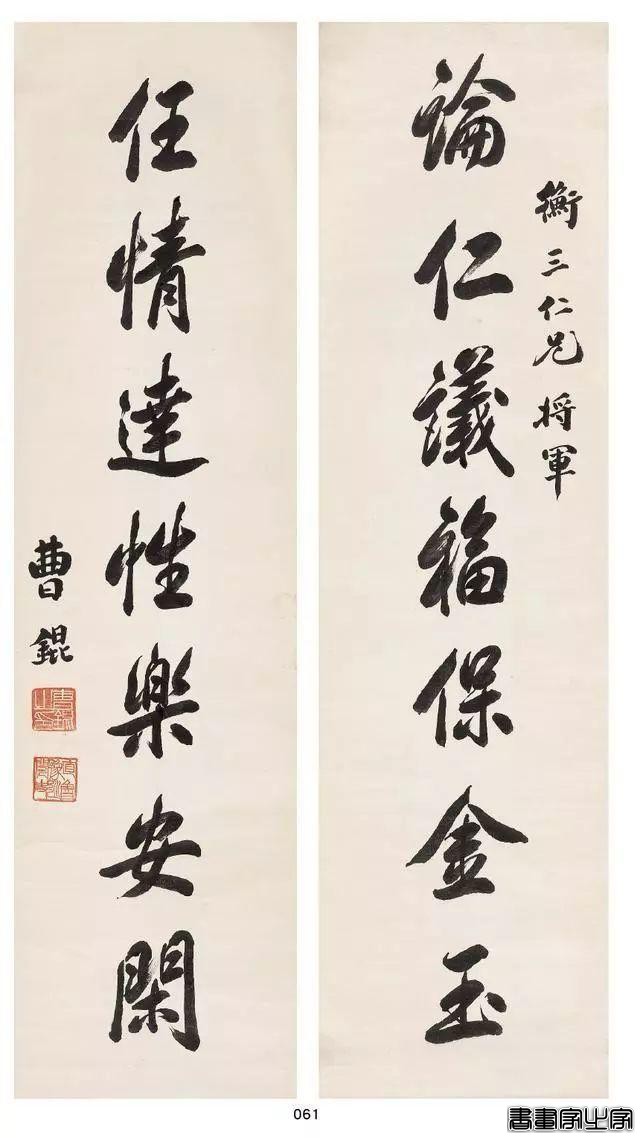 衡三仁兄将軍
論仁議福保金玉
任情達性樂安閑
曹錕
061
書畫家之家